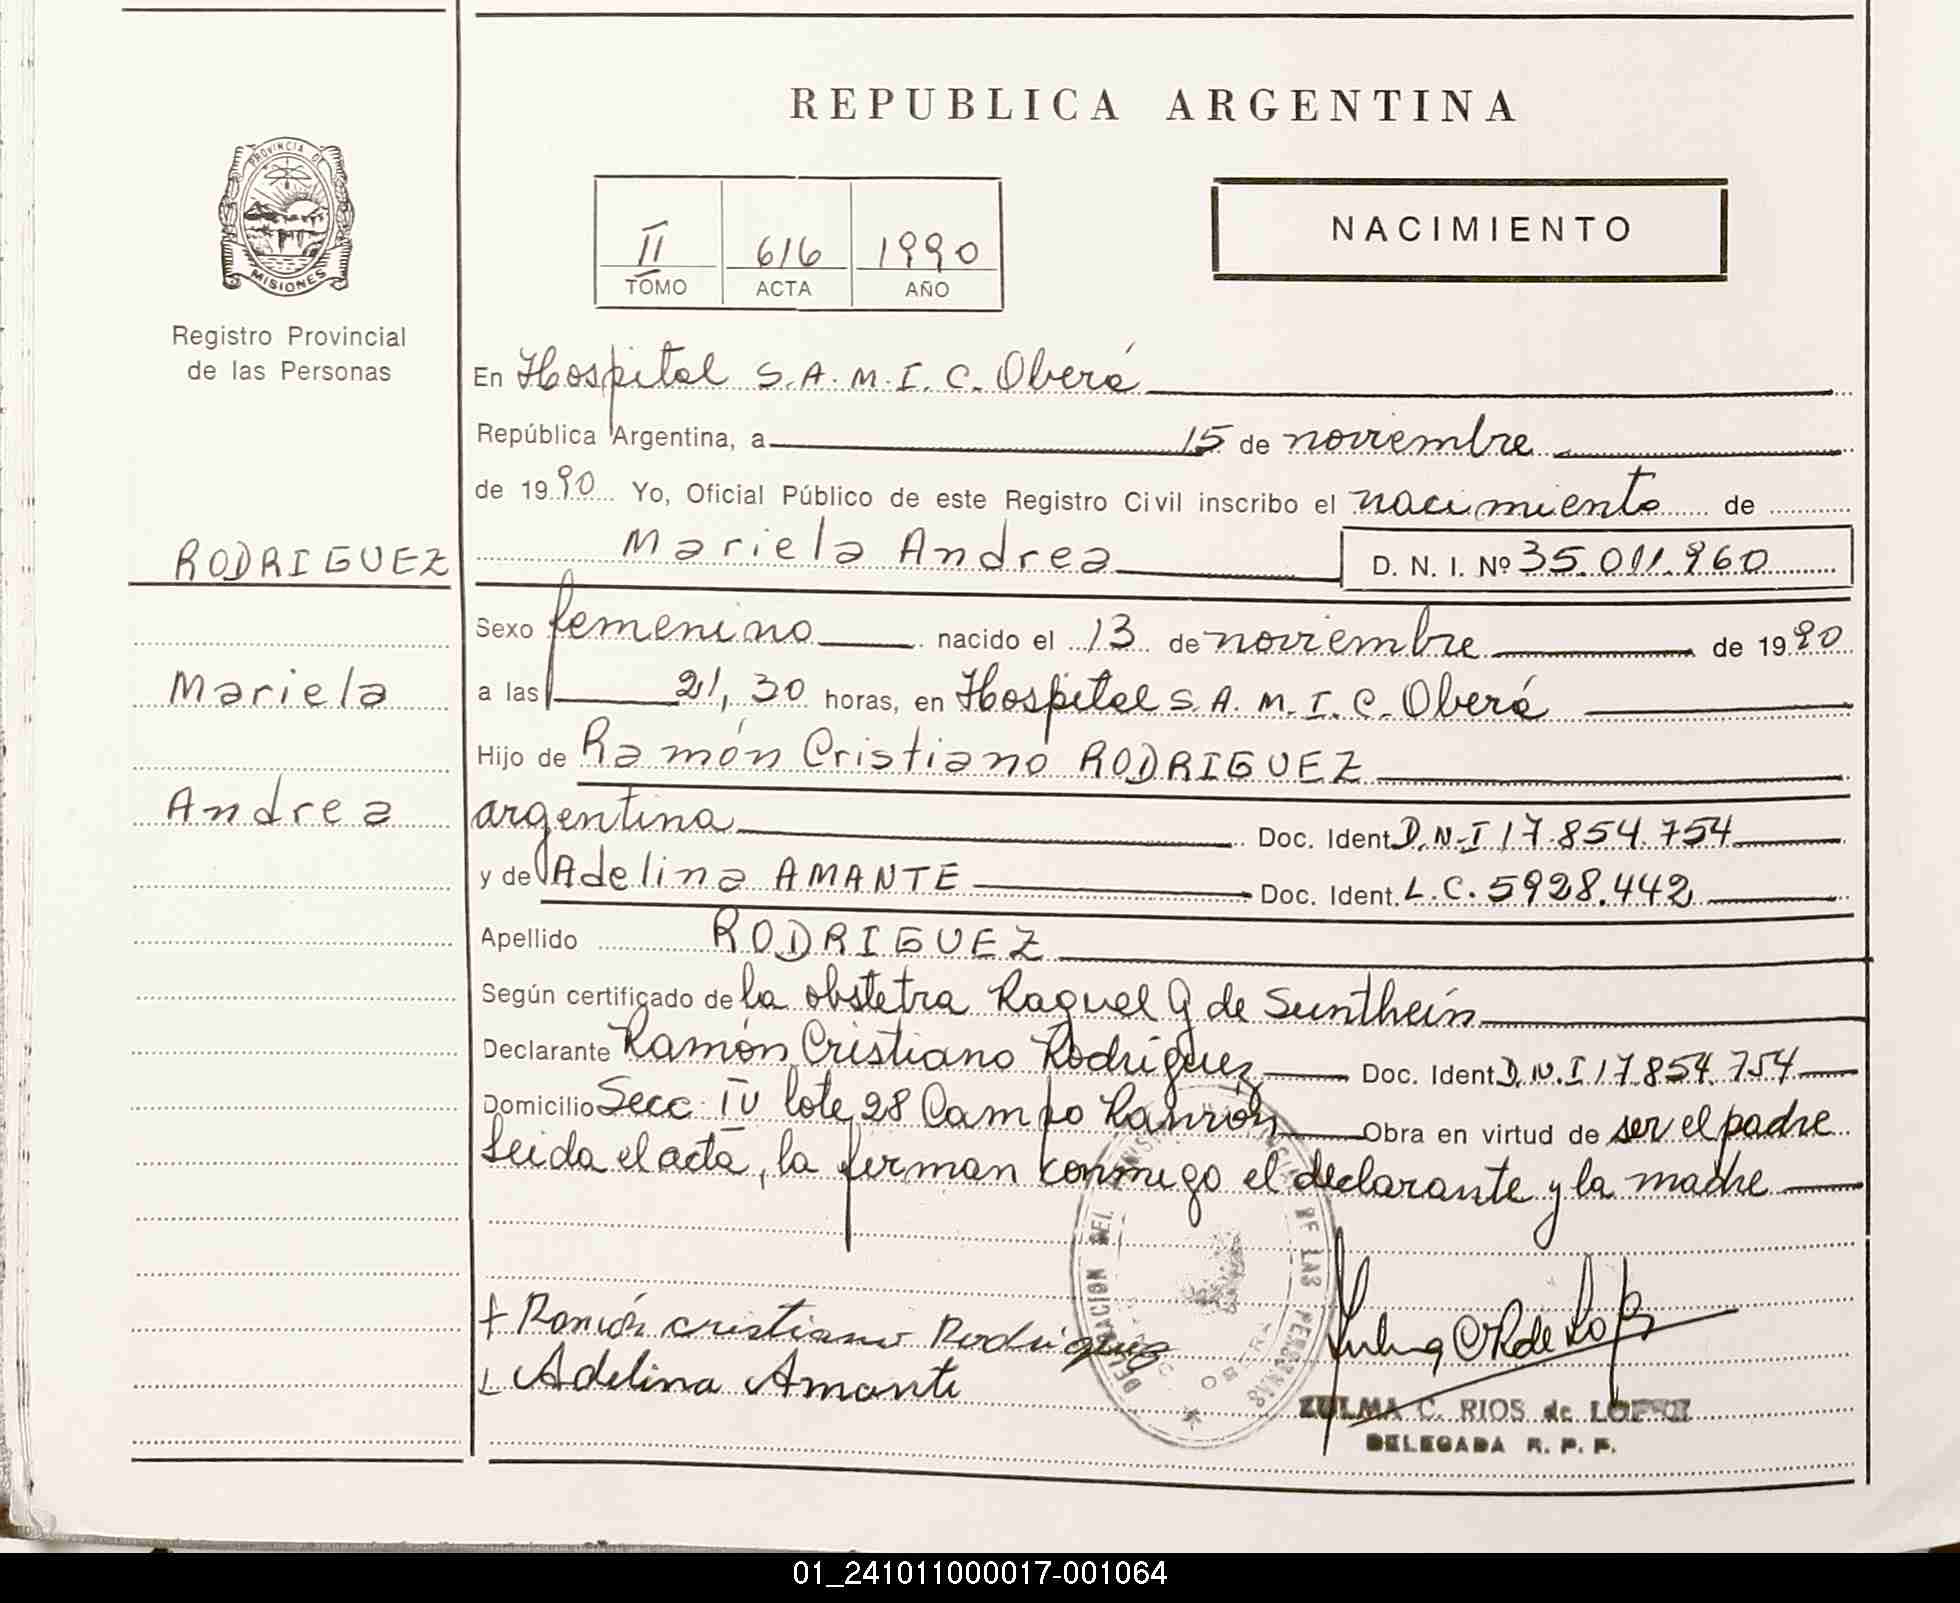 REPUBLICA ARGENTINA
PROVINCIA DE
MISIONES
Registro Provincial
de las Personas
II 616 1990
TOMO ACTA AÑO
NACIMIENTO
En Hospital S.A.M.I.C. Oberá
República Argentina, a 15 de noviembre
de 1990 Yo, Oficial Público de este Registro Civil inscribo el nacimiento de
RODRIGUEZ
Mariela Andrea D. N. I. Nº 35.011.960
Sexo femenino nacido el 13 de noviembre de 1990
Mariela
a las 21,30 horas, en Hospital S.A.M.I.C. Oberá
Hijo de Ramón Cristiano RODRIGUEZ
Andrea
argentina Doc. Ident. D.N.I 17.854.754
y de Adelina AMANTE Doc. Ident. L.C. 5928.442
Apellido RODRIGUEZ
Según certificado de la obstetra Raquel G de Sunthein
Declarante Ramón Cristiano Rodriguez Doc. Ident D.N.I 17.854.754
Domicilio Secc. IV lote 28 Campo Obra en virtud de ser el padre
Leida el acta, la firman conmigo el declarante y la madre
Ramón cristiano Rodriguez
Adelina Amante
ZULMA C. RIOS de LOPEZ
DELEGADA R. P. P.
01_241011000017-001064